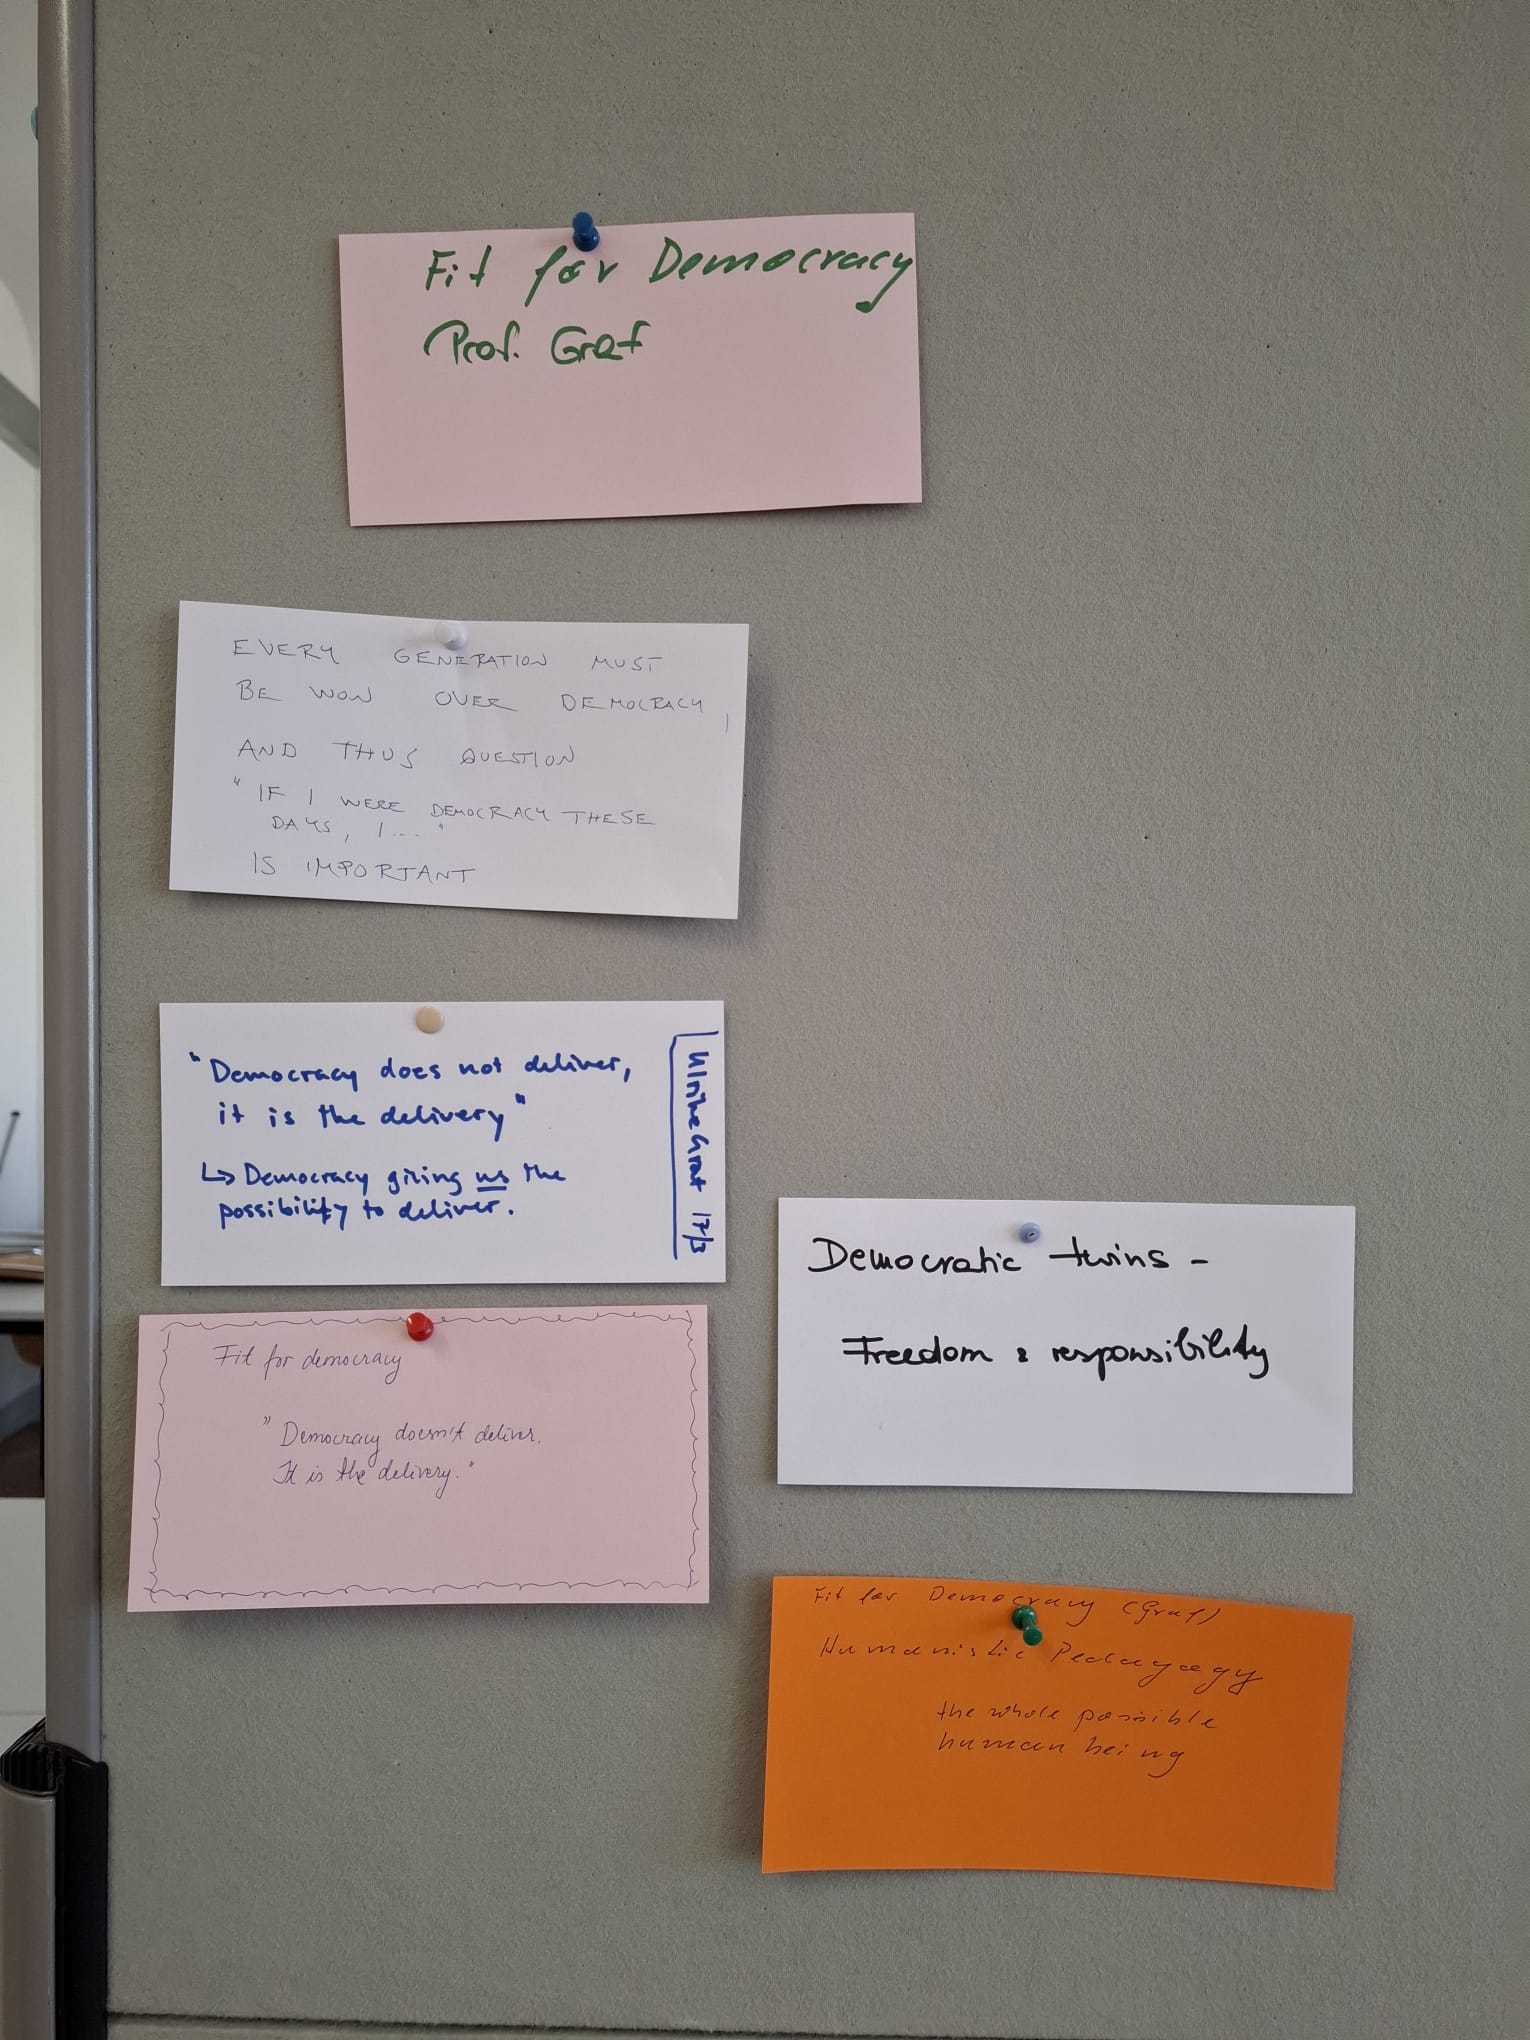 Fit for Democracy
Prof. Graf
EVERY GENERATION MUST
BE WON OVER DEMOCRACY,
AND THUS QUESTION
"IF I WERE DEMOCRACY THESE
DAYS, I...."
IS IMPORTANT
"Democracy does not deliver,
it is the delivery"
↳ Democracy giving us the
possibility to deliver.
Ulrike Graf 17/3
Fit for democracy
"Democracy doesn't deliver.
It is the delivery."
Democratic twins -
Freedom & responsibility
Fit for Democracy (Graf)
Humanistic Pedagogy
the whole possible
human being